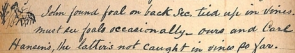 John found foal on back Sec. tied up in vines.
must see foals occasionally - ours and Carl
Hansen's, the latter's not caught in vines so far.